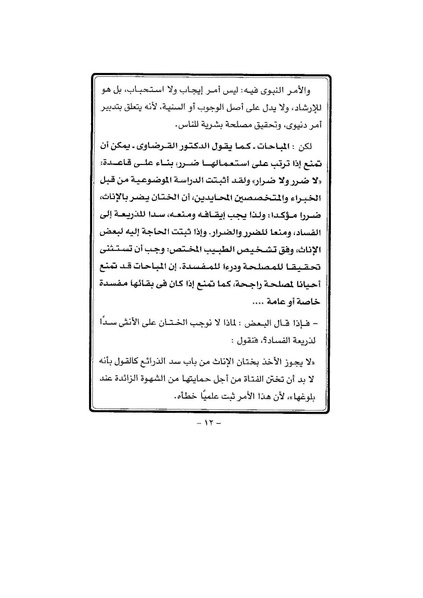 والأمر النبوى فيه: ليس أمر إيجاب ولا استحباب، بل هو
للإرشاد، ولا يدل على أصل الوجوب أو السنية، لأنه يتعلق بتدبير
أمر دنيوى، وتحقيق مصلحة بشرية للناس.
لكن : المباحات ـ كما يقول الدكتور القرضاوى ـ يمكن أن
تمنع إذا ترتب على استعمالها ضرر، بناء على قاعدة:
«لا ضرر ولا ضرار» ولقد أثبتت الدراسة الموضوعية من قبل
الخبراء والمتخصصين المحايدين، أن الختان يضر بالإناث،
ضررا مؤكدا: ولذا يجب إيقافه ومنعه، سدا للذريعة إلى
الفساد، ومنعا للضرر والضرار. وإذا ثبتت الحاجة إليه لبعض
الإناث، وفق تشخيص الطبيب المختص: وجب أن تستثنى
تحقيقا للمصلحة ودرءا للمفسدة. إن المباحات قد تمنع
أحيانا لمصلحة راجحة، كما تمنع إذا كان فى بقائها مفسدة
خاصة أو عامة ....
– فإذا قال البعض : لماذا لا نوجب الختان على الأنثى سدًا
لذريعة الفساد؟، فنقول :
«لا يجوز الأخذ بختان الإناث من باب سد الذرائع كالقول بأنه
لا بد أن تختن الفتاة من أجل حمايتها من الشهوة الزائدة عند
بلوغها»، لأن هذا الأمر ثبت علميًا خطأه.
– ١٢ –